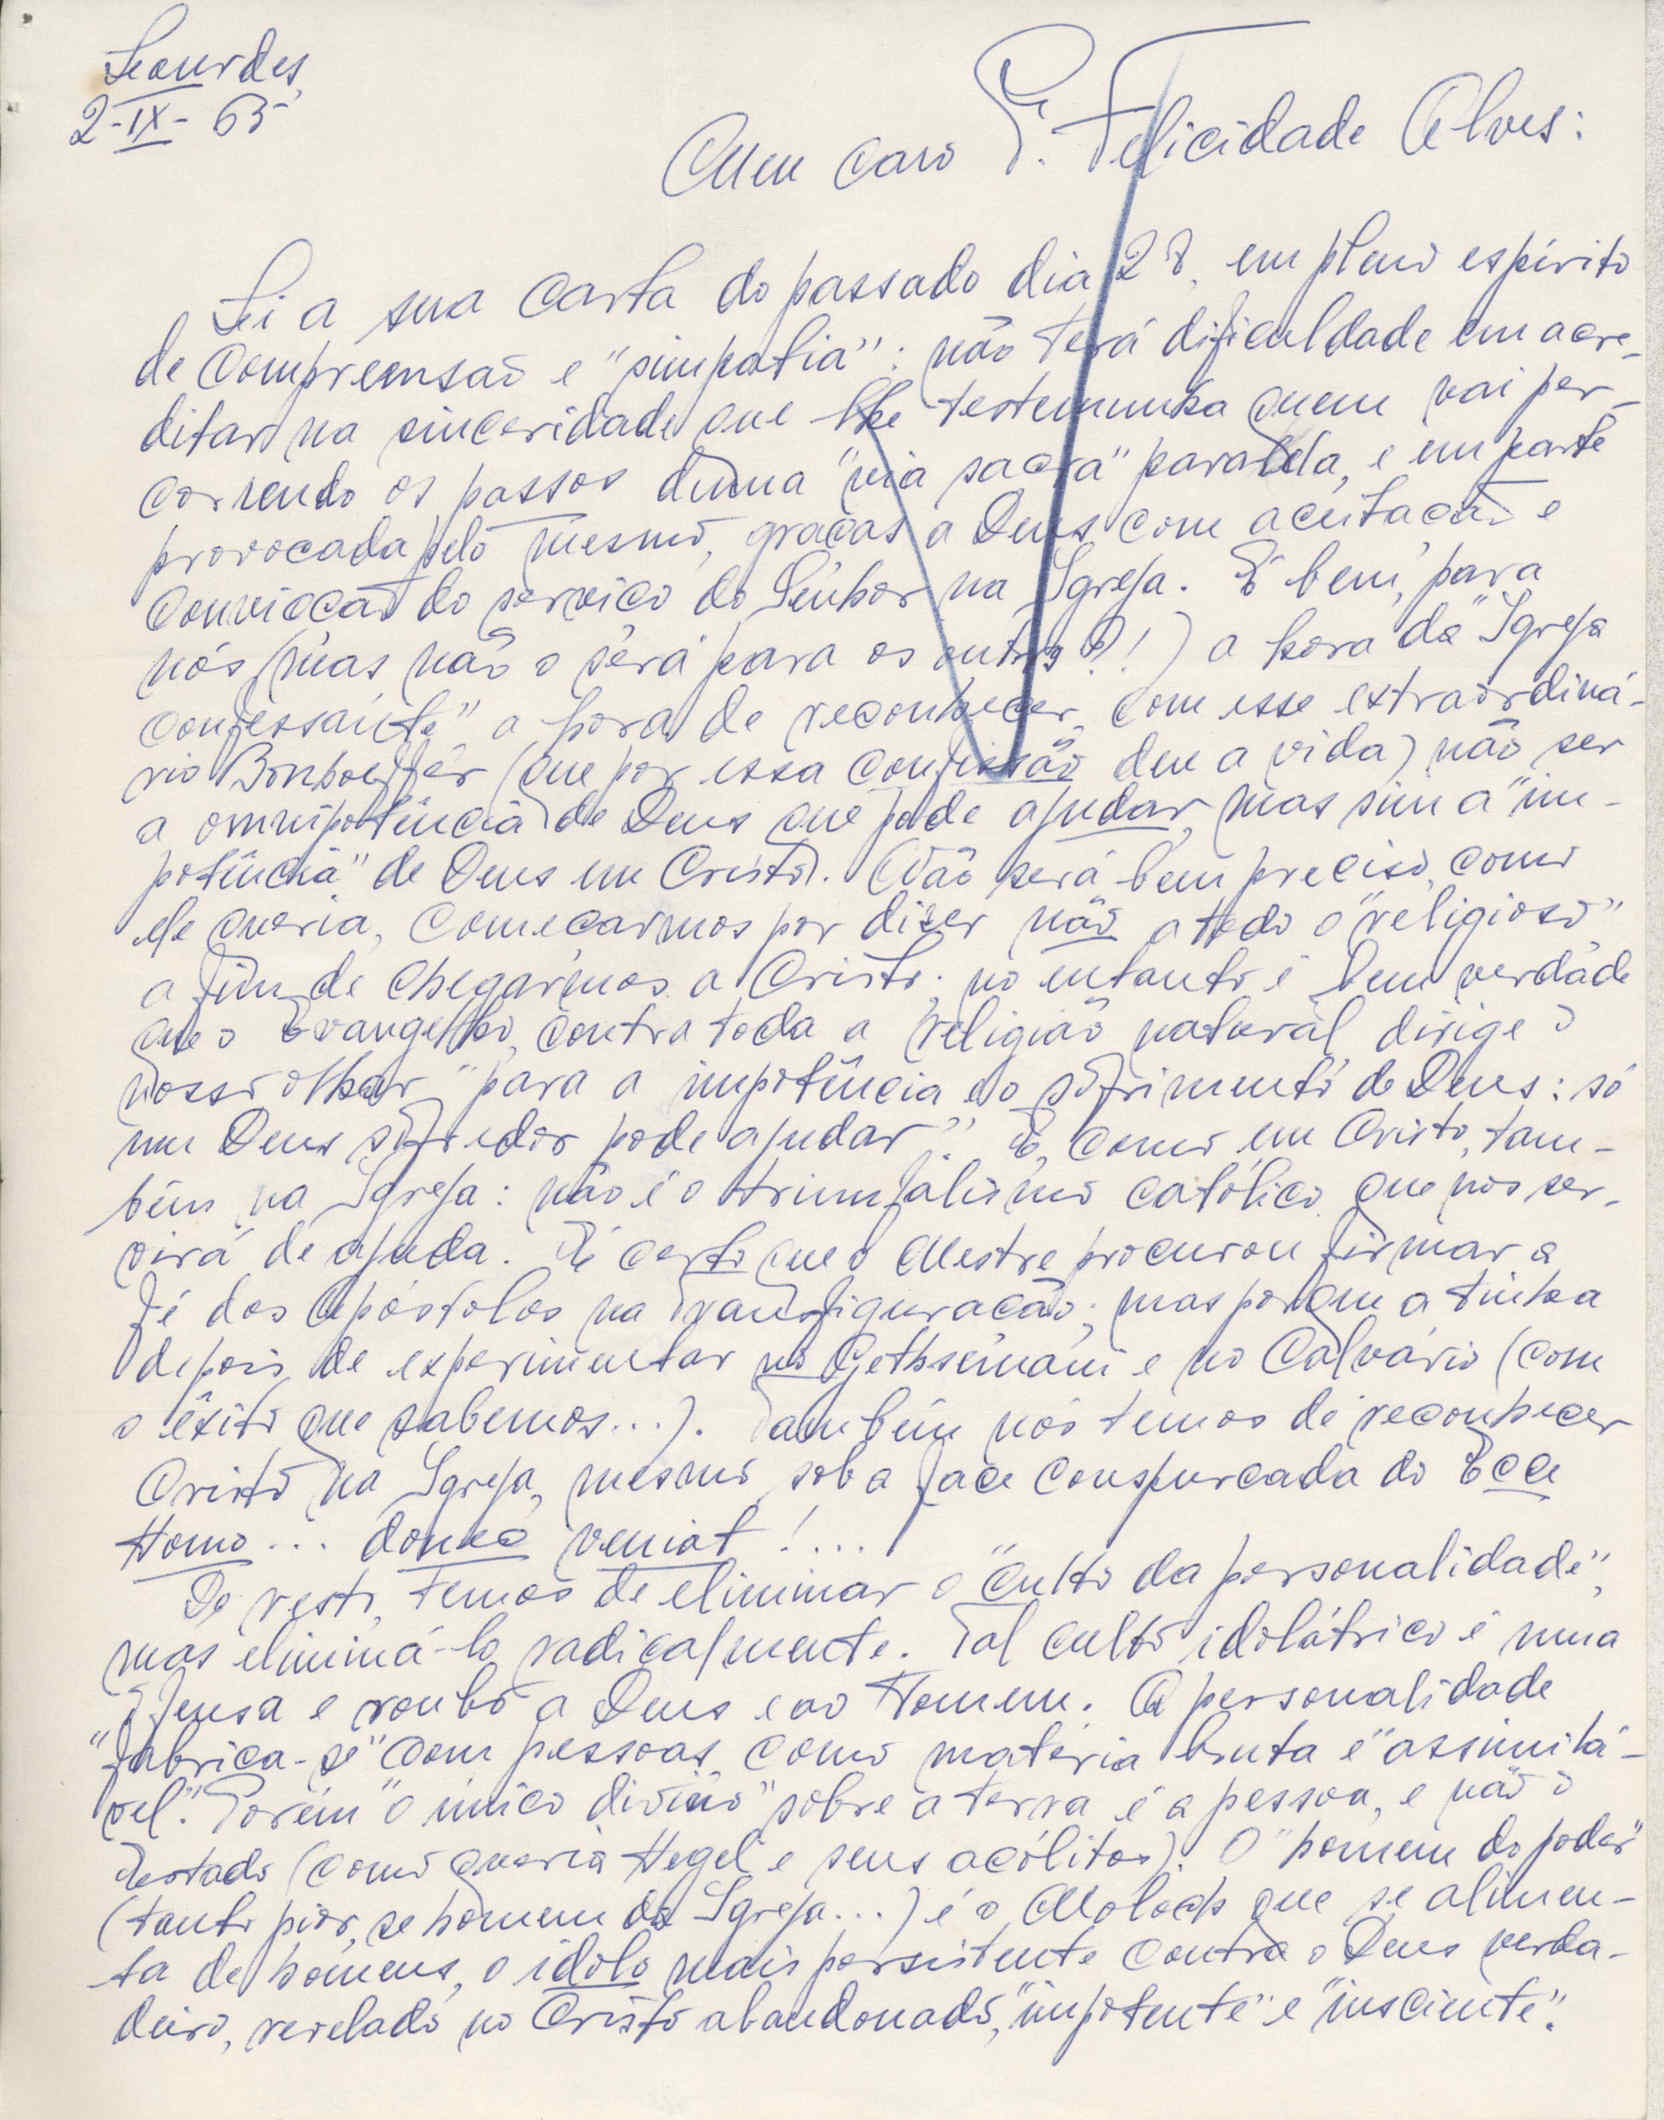 Lourdes,
2-IX-65
Meu caro P.e Felicidade Alves:
Li a sua carta do passado dia 28, em pleno espírito
de compreensão e "simpatia": não terá dificuldade em acre-
ditar na sinceridade que lhe testemunha quem vai per-
correndo os passos duma "via sacra" paralela, e em parte
provocada pelo mesmo, graças a Deus com aceitação e
convicção do serviço do Senhor na Igreja. É bem, para
nós (mas não o será para os outros?!) a hora da "Igreja
confessante" a hora de reconhecer, com esse extraordiná-
rio Bonhoeffer (que por essa confissão deu a vida) não ser
a omnipotência de Deus que pode ajudar, mas sim a "im-
potência" de Deus em Cristo. Não será bem preciso, como
ele queria, começarmos por dizer não a todo o "religioso"
a fim de chegarmos a Cristo; no entanto é bem verdade
que o Evangelho, contra toda a religião natural dirige o
nosso olhar "para a impotência e o sofrimento de Deus: só
um Deus sofredor pode ajudar". E, como em Cristo, tam-
bém na Igreja: não é o triunfalismo católico que nos ser-
virá de ajuda. É certo que o Mestre procurou firmar a
fé dos Apóstolos na Transfiguração; mas porque a tinha
depois de experimentar no Gethsémani e no Calvário (com
o êxito que sabemos...). Também nós temos de reconhecer
Cristo na Igreja, mesmo sob a face conspurcada do Ecce
Homo... donec veniat!...
De resto, temos de eliminar o "culto da personalidade",
mas eliminá-lo radicalmente. Tal culto idolátrico é uma
ofensa e roubo a Deus e ao Homem. A personalidade
"fabrica-se" com pessoas, como matéria bruta e "assimilá-
vel". Porém "o único divino" sobre a terra é a pessoa, e não o
Estado (como queria Hegel e seus acólitos). O "homem do poder"
(tanto pior, se homem da Igreja...) é o Moloch que se alimen-
ta de homens, o ídolo mais persistente contra o Deus verda-
deiro, revelado no Cristo abandonado, "impotente" e "insciente".